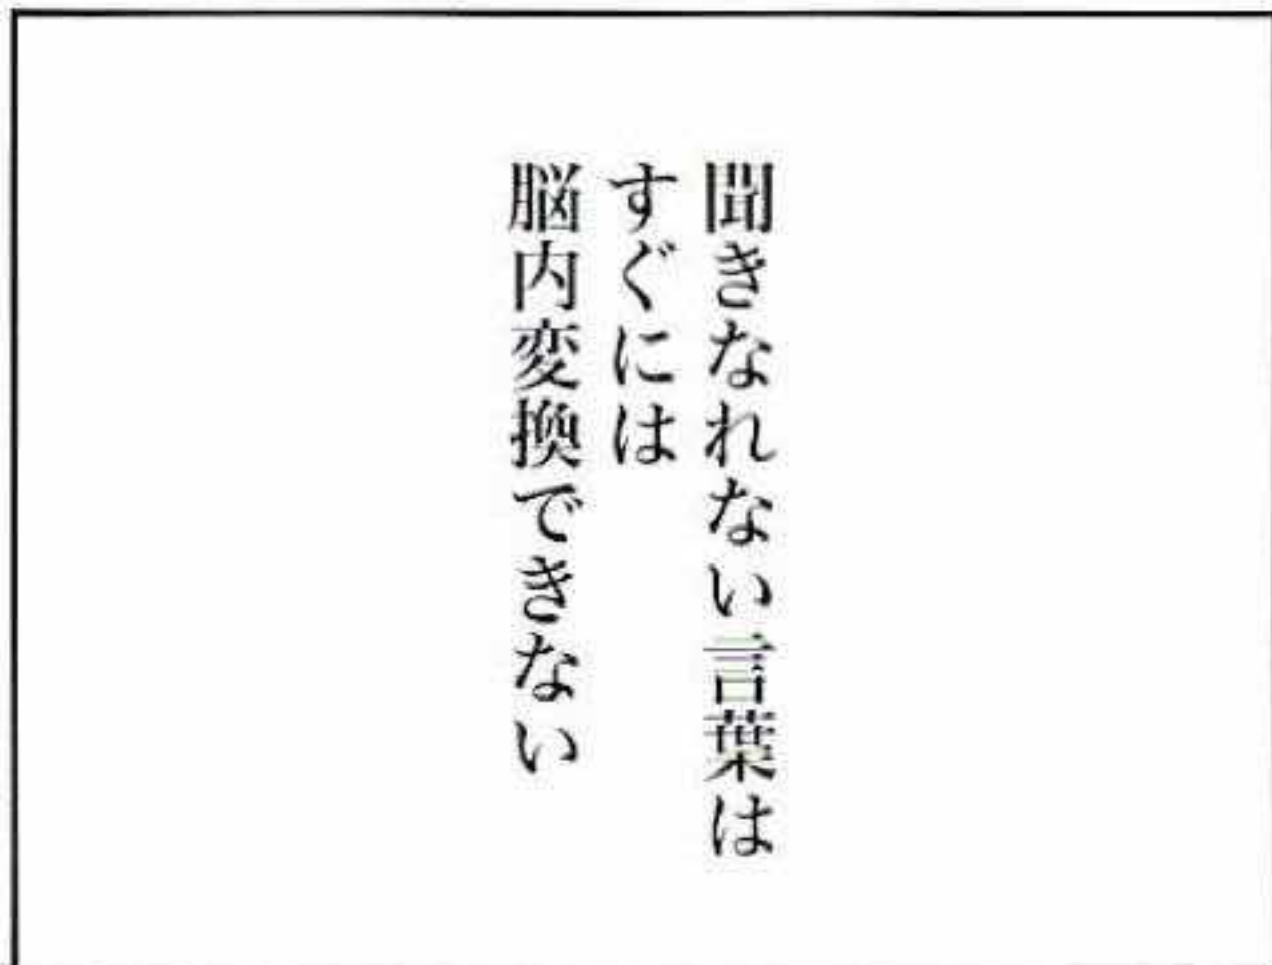 聞きなれない言葉は
すぐには
脳内変換できない